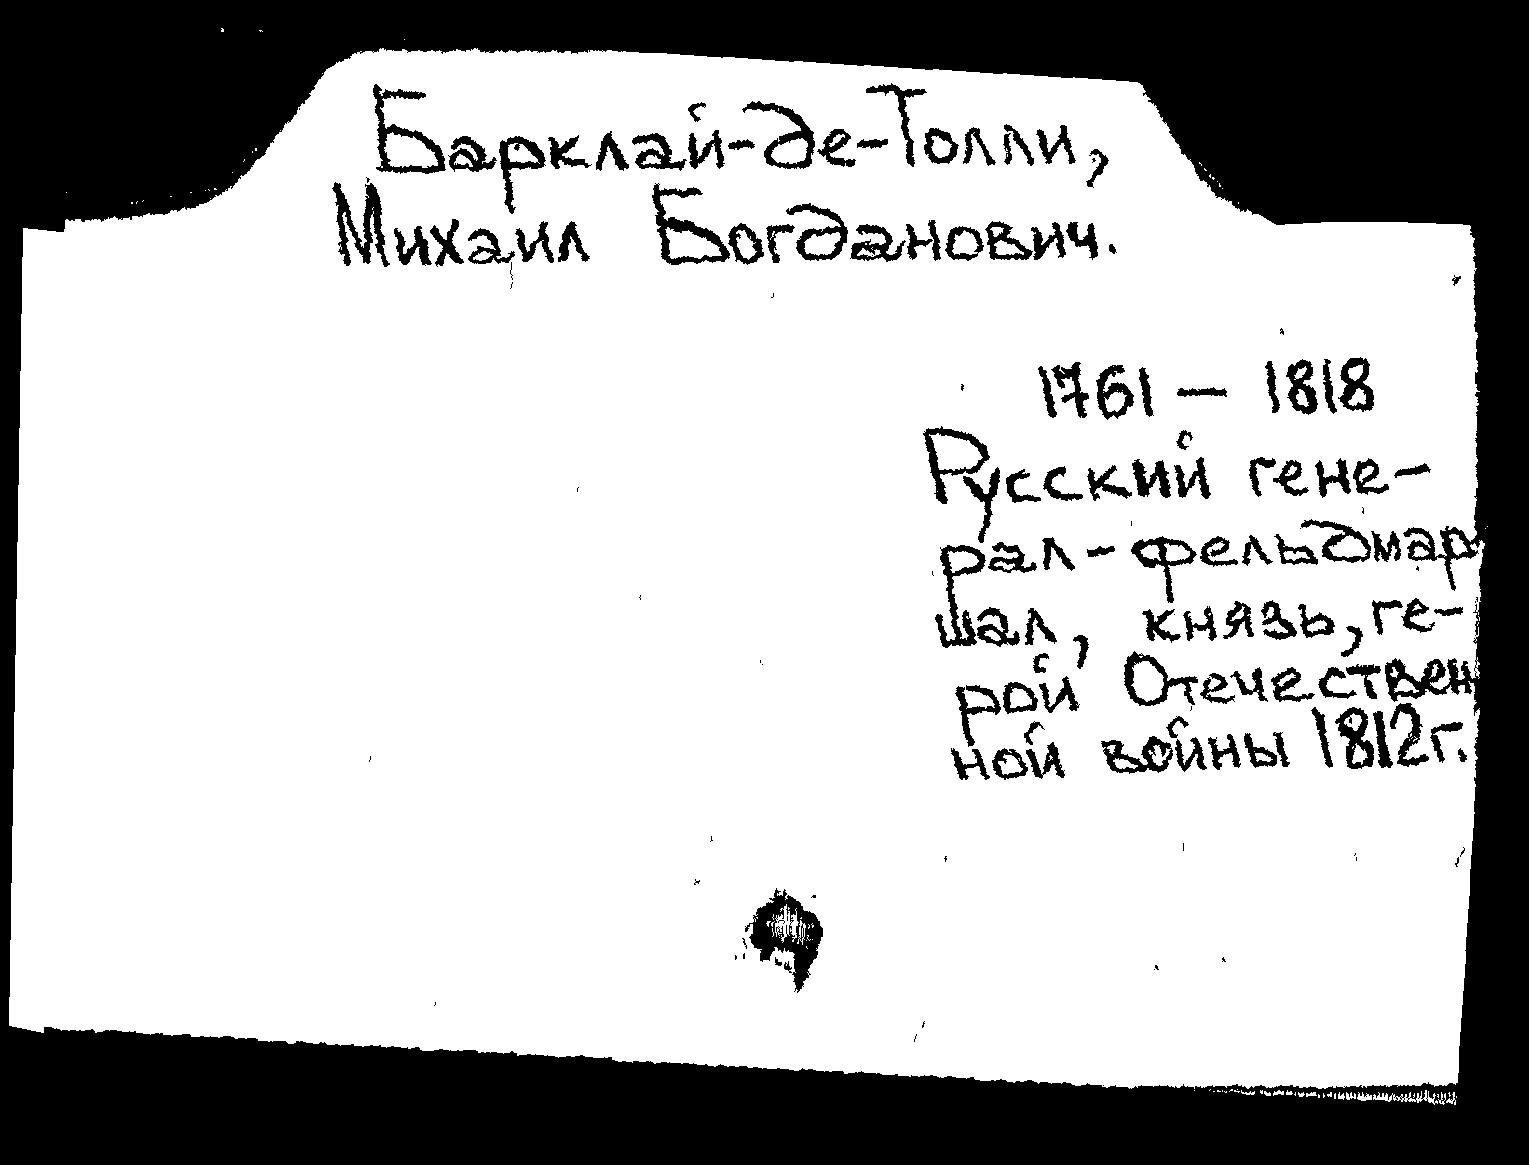 Барклай-де-Толли,
Михаил Богданович.
1761 — 1818
Русский гене-
рал-фельдмар
шал, князь, ге-
рой Отечествен
ной войны 1812г.